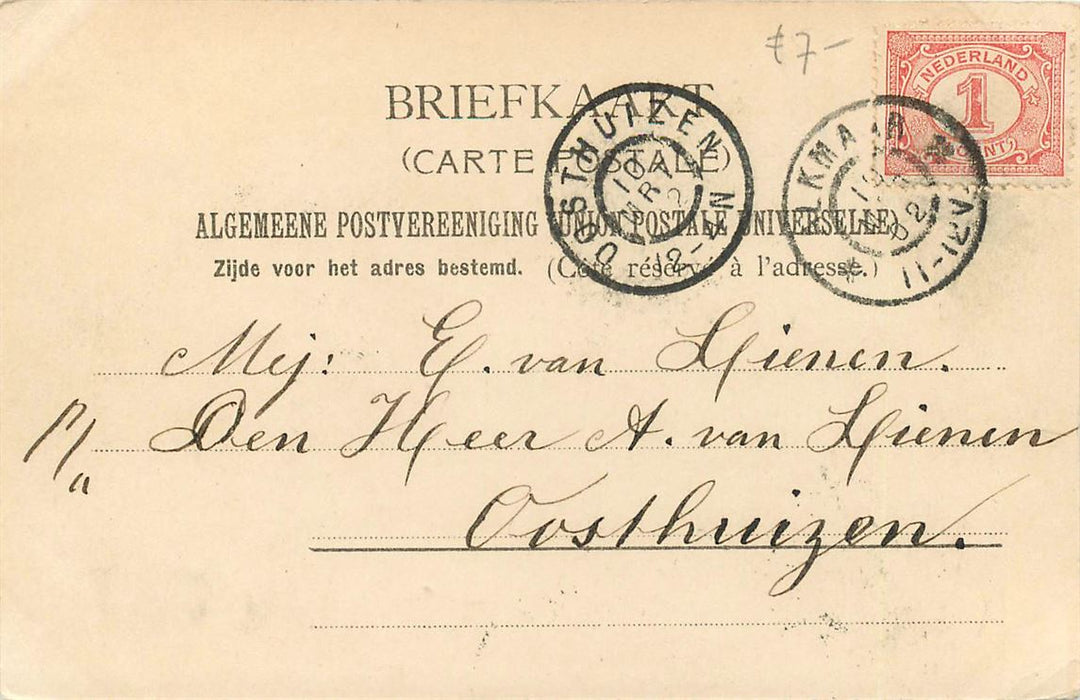 £7-
NEDERLAND
1
CENT
BRIEFKAART
(CARTE POSTALE)
ALGEMEENE POSTVEREENIGING (UNION POSTALE UNIVERSELLE)
Zijde voor het adres bestemd. (Côté réservé à l'adresse.)
OOSTHUIZEN
10 MRT 2
12-4N
ALKMAAR
10 02
11-12V
Mej: E. van Lienen.
P/a Den Heer A. van Lienen
Oosthuizen.